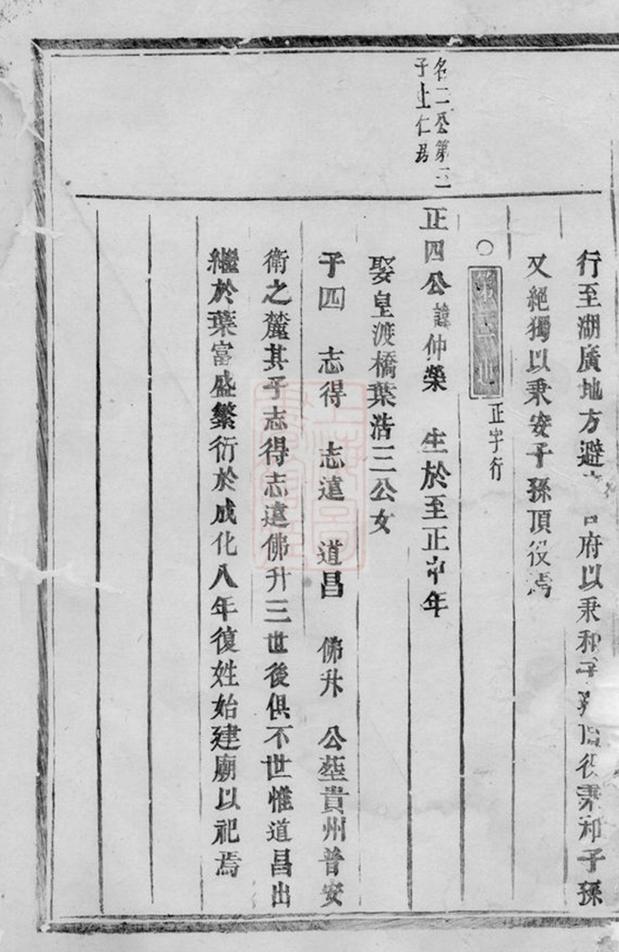 行至湖廣地方避 府以秉和子孫頂役秉和子孫
又絕獨以秉安子孫頂役焉
○ 正字行
名二公第三
子上仁易
正四公諱仲榮 生於至正中年
娶皇渡橋葉浩三公女
子四 志得 志遠 道昌 佛升 公塟貴州普安
衛之麓其子志得志遠佛升三世後俱不世惟道昌出
繼於葉富盛繁衍於成化八年復姓始建廟以祀焉